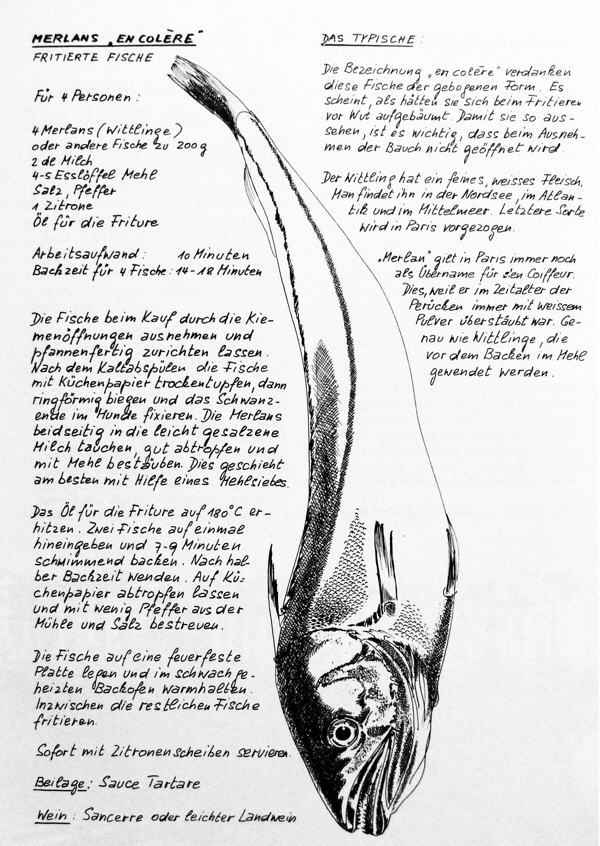 MERLANS „EN COLÈRE"
FRITIERTE FISCHE
Für 4 Personen:
4 Merlans (Wittlinge)
oder andere Fische zu 200g
2 dl Milch
4-5 Esslöffel Mehl
Salz, Pfeffer
1 Zitrone
Öl für die Friture
Arbeitsaufwand: 10 Minuten
Backzeit für 4 Fische: 14-18 Minuten
Die Fische beim Kauf durch die Kie-
menöffnungen ausnehmen und
pfannenfertig zurichten lassen.
Nach dem Kaltabspülen die Fische
mit Küchenpapier trockentupfen, dann
ringförmig biegen und das Schwanz-
ende im Munde fixieren. Die Merlans
beidseitig in die leicht gesalzene
Milch tauchen, gut abtropfen und
mit Mehl bestäuben. Dies geschieht
am besten mit Hilfe eines Mehlsiebes.
Das Öl für die Friture auf 180°C er-
hitzen. Zwei Fische auf einmal
hineingeben und 7-9 Minuten
schwimmend backen. Nach hal-
ber Backzeit wenden. Auf Kü-
chenpapier abtropfen lassen
und mit wenig Pfeffer aus der
Mühle und Salz bestreuen.
Die Fische auf eine feuerfeste
Platte legen und im schwach ge-
heizten Backofen warmhalten.
Inzwischen die restlichen Fische
fritieren.
Sofort mit Zitronenscheiben servieren.
Beilage: Sauce Tartare
Wein: Sancerre oder leichter Landwein
DAS TYPISCHE:
Die Bezeichnung „en colère" verdanken
diese Fische der gebogenen Form. Es
scheint, als hätten sie sich beim Fritieren
vor Wut aufgebäumt. Damit sie so aus-
sehen, ist es wichtig, dass beim Ausneh-
men der Bauch nicht geöffnet wird.
Der Wittling hat ein feines, weisses Fleisch.
Man findet ihn in der Nordsee, im Atlan-
tik und im Mittelmeer. Letztere Sorte
wird in Paris vorgezogen.
„Merlan" gilt in Paris immer noch
als Übername für den Coiffeur.
Dies, weil er im Zeitalter der
Perücken immer mit weissem
Pulver überstäubt war. Ge-
nau wie Wittlinge, die
vor dem Backen im Mehl
gewendet werden.